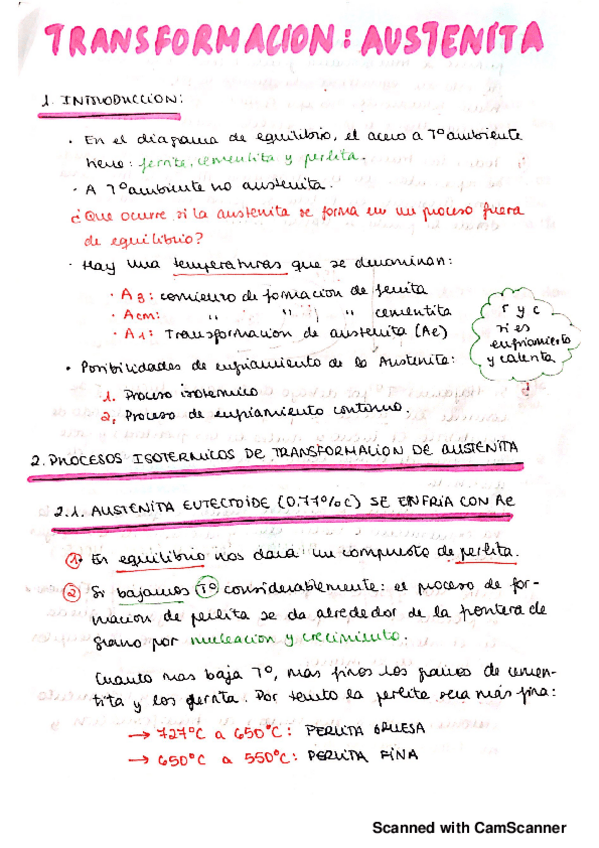 TRANSFORMACION: AUSTENITA
1. INTRODUCCION:
· En el diagrama de equilibrio, el acero a Tº ambiente
tiene: ferrita, cementita y perlita.
· A Tº ambiente no austenita.
¿Que ocurre si la austenita se forma en un proceso fuera
de equilibrio?
· Hay una temperaturas que se denominan:
· A3: comienzo de formacion de ferrita
· Acm: " " " cementita
· A1: Transformacion de austenita (Ae)
r y c
si es
enfriamiento
y calenta.
· Posibilidades de enfriamiento de la Austenita:
1. Proceso isotermico
2. Proceso de enfriamiento continuo.
2. PROCESOS ISOTERMICOS DE TRANSFORMACION DE AUSTENITA
2.1. AUSTENITA EUTECTOIDE (0.77%C) SE ENFRIA CON Ae
1 En equilibrio nos dará un compuesto de perlita.
2 Si bajamos Tº considerablemente: el proceso de for-
macion de perlita se da alrededor de la frontera de
grano por nucleacion y crecimiento.
Cuanto mas baja Tº, mas finos los granos de cemen-
tita y los ferrita. Por tanto la perlita sera más fina:
→ 727ºC a 650ºC: PERLITA GRUESA
→ 650ºC a 550ºC: PERLITA FINA
Scanned with CamScanner